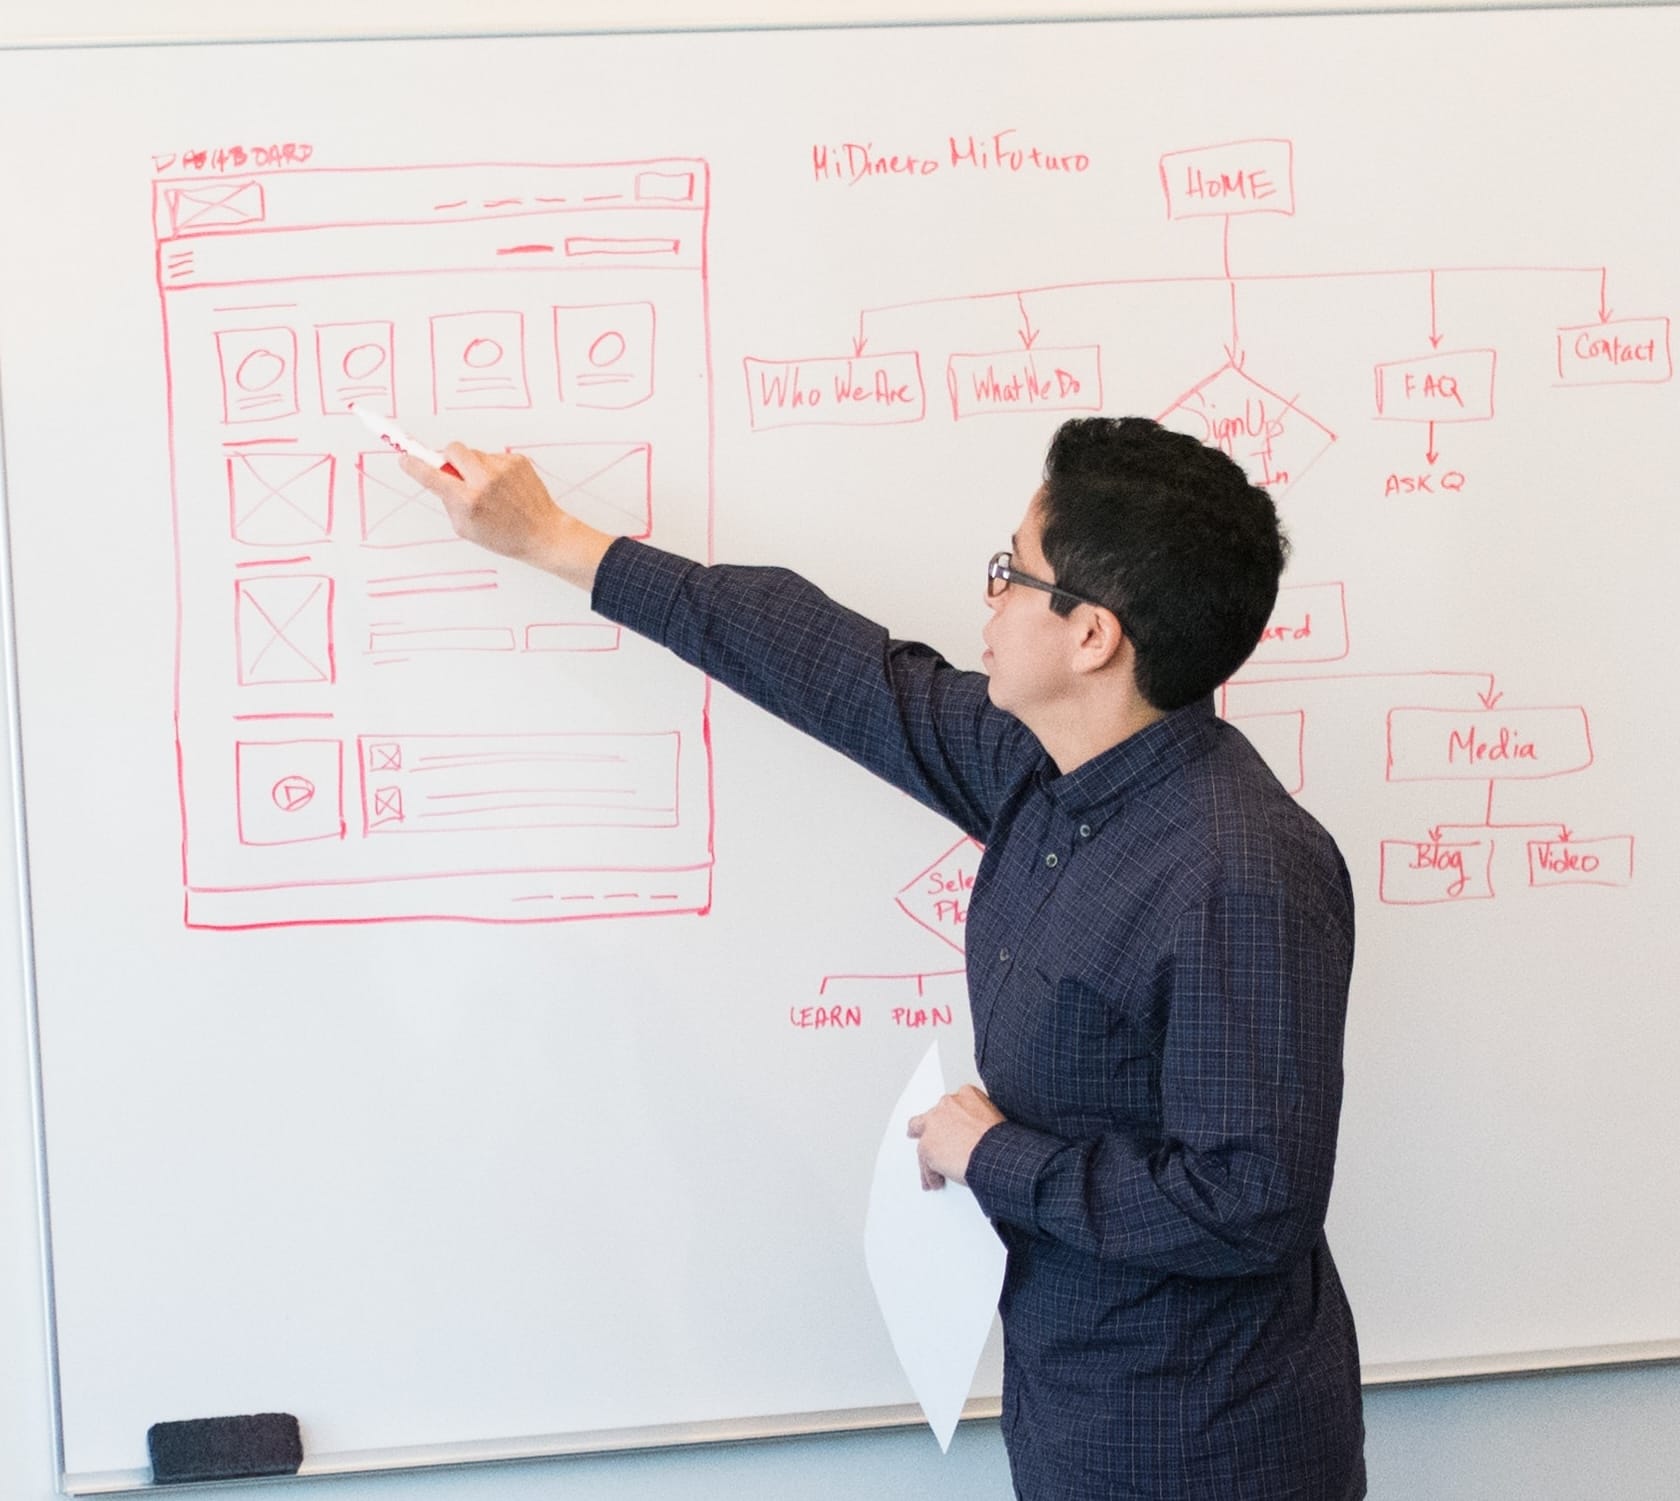 DASHBOARD
MiDinero MiFuturo
HOME
Who We Are
What We Do
SignUp
In
FAQ
Contact
ASK Q
Media
Blog
Video
LEARN PLAN